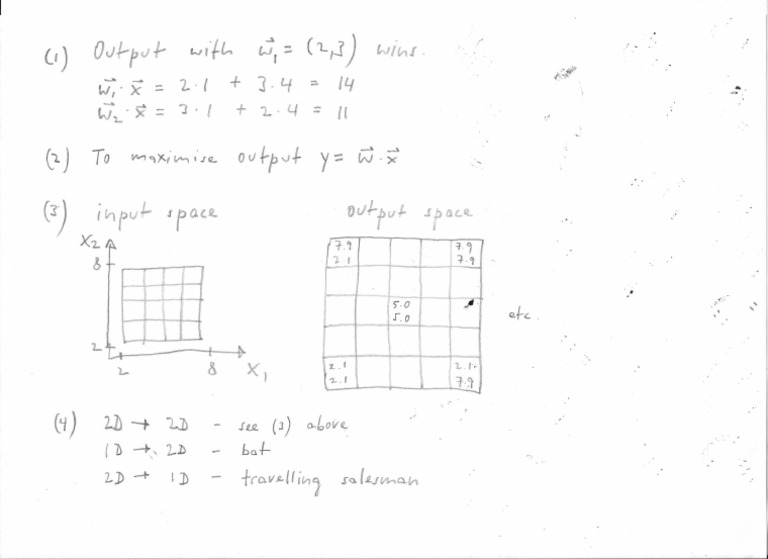 (1) Output with w⃗₁ = (2,3) wins.
w⃗₁·x⃗ = 2·1 + 3·4 = 14
w⃗₂·x⃗ = 3·1 + 2·4 = 11
(2) To maximise output y = w⃗·x⃗
(3) input space output space
X₂
8
2
2 8 X₁
7.9 7.9
2.1 7.9
5.0
5.0
etc.
2.1 2.1
2.1 7.9
(4) 2D → 2D - see (3) above
1D → 2D - bat
2D → 1D - travelling salesman